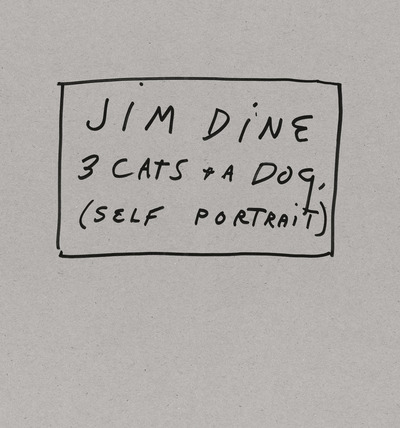 JiM DiNE
3 CATS + A DOG.
(SELF PORTRAiT)